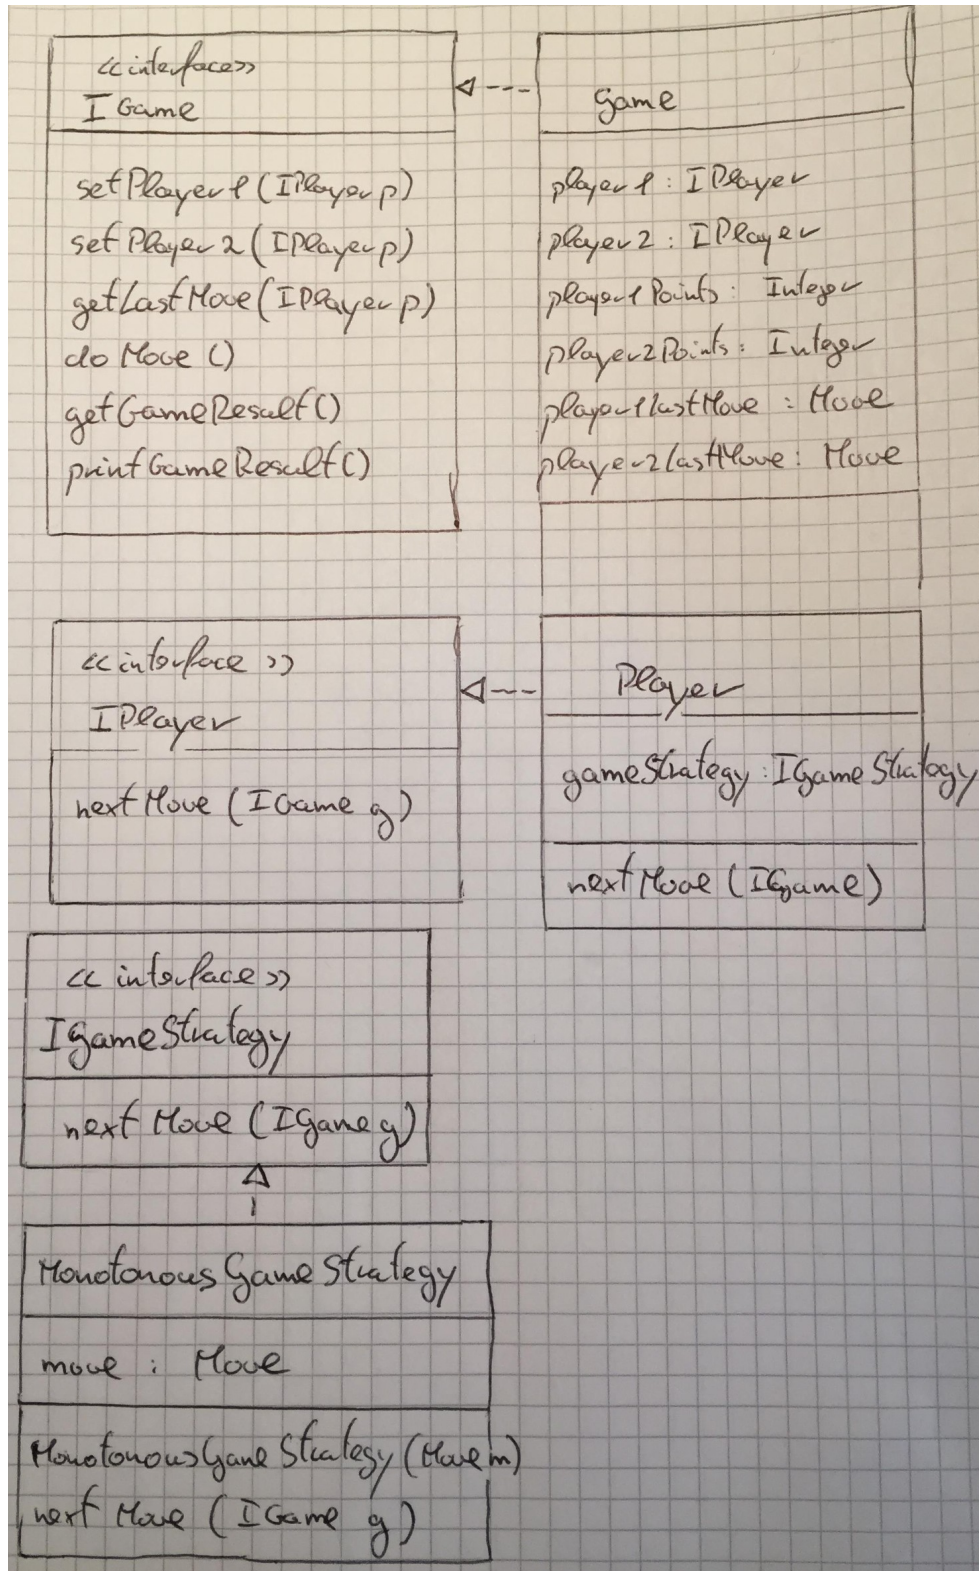 <<interface>>
IGame
setPlayer1(IPlayer p)
setPlayer2(IPlayer p)
getLastMove(IPlayer p)
doMove()
getGameResult()
printGameResult()
Game
player1: IPlayer
player2: IPlayer
player1Points: Integer
player2Points: Integer
player1lastMove: Move
player2lastMove: Move
<<interface>>
IPlayer
nextMove(IGame g)
Player
gameStrategy: IGameStrategy
nextMove(IGame)
<<interface>>
IGameStrategy
nextMove(IGame g)
MonotonousGameStrategy
move: Move
MonotonousGameStrategy(Move m)
nextMove(IGame g)